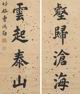 壑歸滄海
雲起泰山